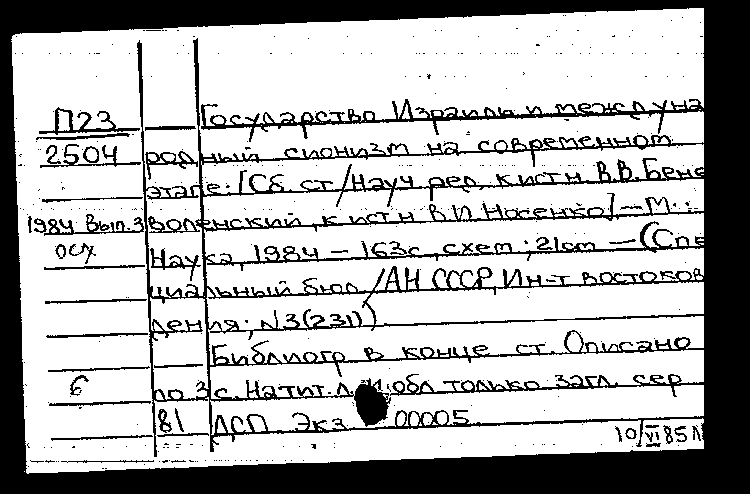 П23 Государство Израиль и междуна
2504 родный сионизм на современном
этапе: [Сб. ст. / Науч. ред. к.ист.н. В.В. Бене
1984 Вып.3 воленский, к.ист.н. В.И. Носенко]. — М.:
осх Наука, 1984 — 163с., схем.; 21см — (Спе
циальный бюл. / АН СССР, Ин-т востокове
дения; N3(231))
Библиогр в конце ст. Описано
6 по 3 с. На тит. л. и обл только загл. сер
81 ДСП Экз 00005
10/VI 85